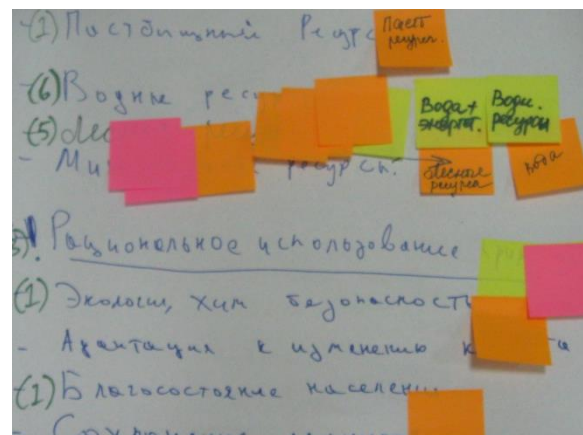 -(1) Пастбищный Ресурс
Паст. ресурс.
(6) Водные ресу
Вода+
энергет.
Водн.
ресурсы
(5) Лес
- Ми ресурсы.
Лесные
ресурсы
вода
Рациональное использование
(1) Экология, хим безопасность
- Адаптация к изменению к та
-(1) Благосостояние населения
- Сохранение